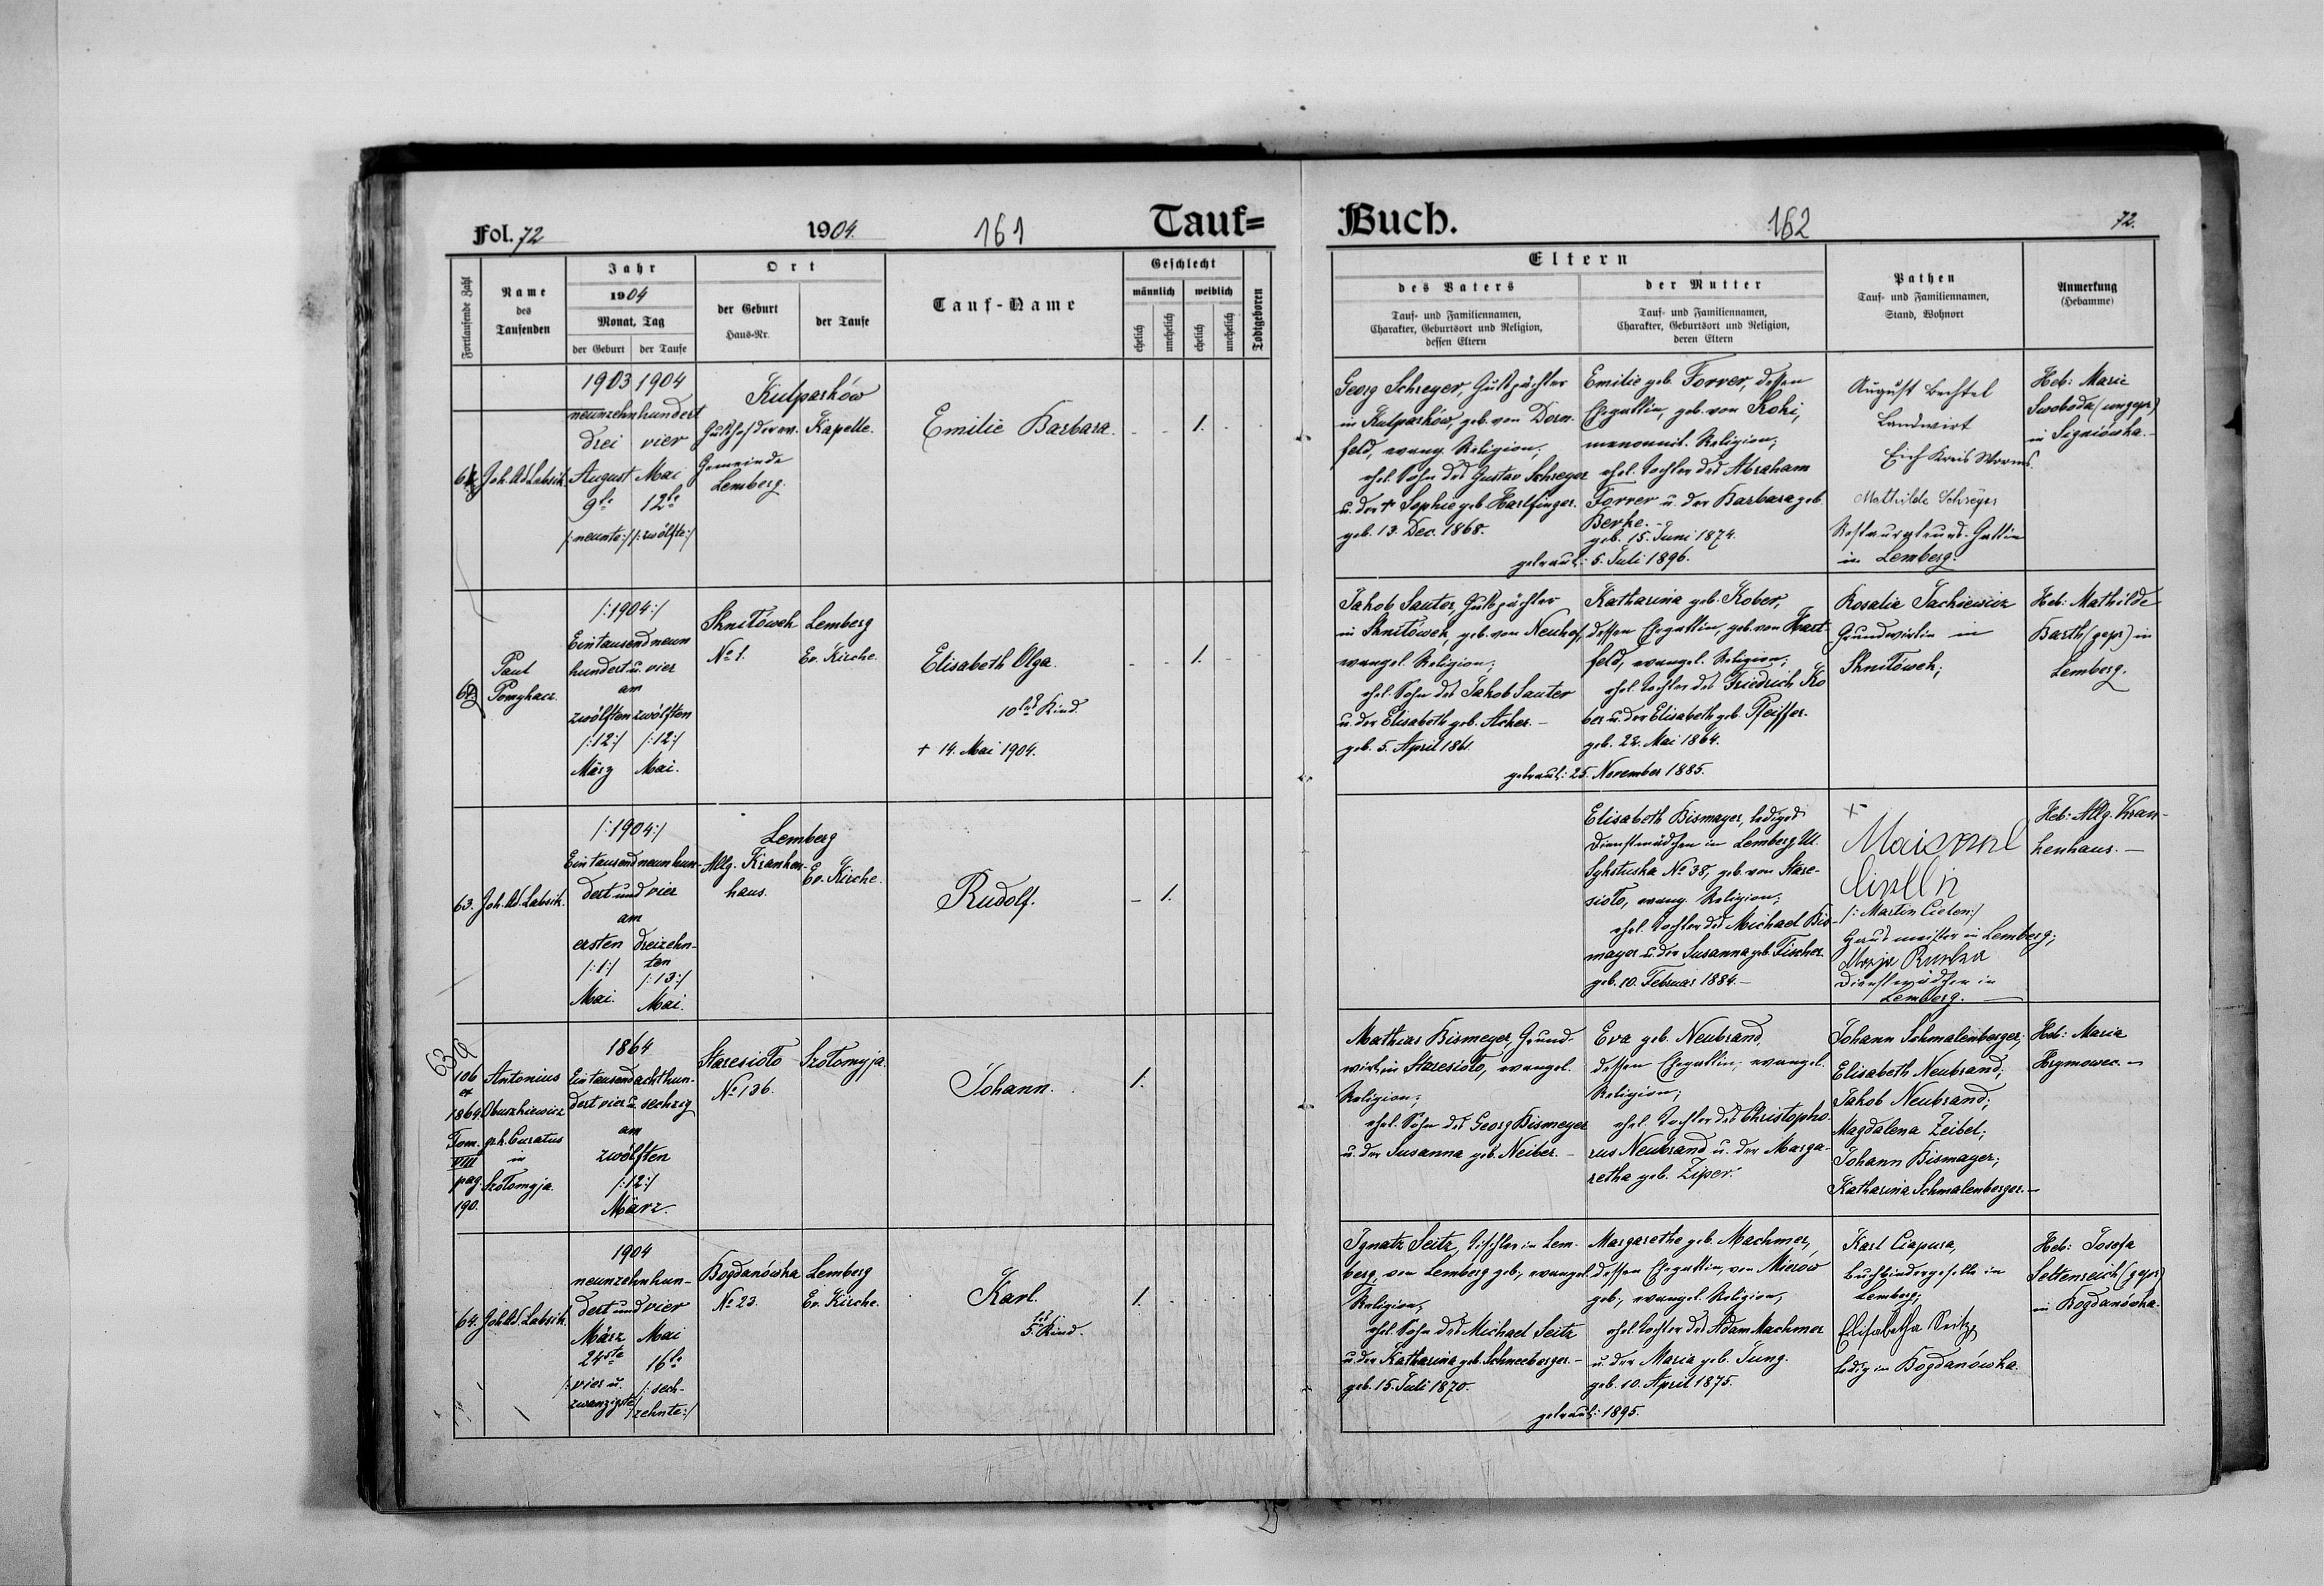 Fol. 72
1904.
161
Tauf=
Buch.
162
72.
Fortlaufende Zahl
Name
des
Taufenden
Jahr
1904
Monat, Tag
der Geburt
der Taufe
Ort
der Geburt
Haus-Nr.
der Taufe
Tauf-Name
Geschlecht
männlich
weiblich
ehelich
unehelich
ehelich
unehelich
Todtgeboren
Eltern
des Vaters
Tauf- und Familiennamen,
Charakter, Geburtsort und Religion,
dessen Eltern
der Mutter
Tauf- und Familiennamen,
Charakter, Geburtsort und Religion,
deren Eltern
Pathen
Tauf- und Familiennamen,
Stand, Wohnort
Anmerkung
(Hebamme)
61.
Joh. Ad. Labsik.
1903 1904
neunzehnhundert
drei vier
August Mai
9te 12te
/:neunte:/ /:zwölfte:/
Kulparków
Gutshof der ev. Kapelle.
Gemeinde
Lemberg.
Emilie Barbara.
1.
Georg Schreyer, Gutspächter
in Kulparków, geb. von Dorn-
feld, evang. Religion;
ehel. Sohn des Gustav Schreyer
u. der † Sophie geb. Harlfinger.
geb. 13. Dec. 1868.
Emilie geb. Forrer, dessen
Ehegattin, geb. von Rohi,
menonnit. Religion;
ehel. Tochter des Abraham
Forrer u. der Barbara geb.
geb. 15. Juni 1874.
getraut: 5. Juli 1896.
August Bechtel
Landwirt
Eich Kreis Worms.
Mathilde Schreyer
Restaurateurs-Gattin
in Lemberg.
Heb: Marie
Swoboda (ungepr)
in Signiówka.
62.
Paul
Pomykacz.
/:1904:/
Eintausendneun
hundert u. vier
am
zwölften zwölften
/:12:/ /:12:/
März Mai.
Sknilówek Lemberg
No 1. Ev. Kirche.
Elisabeth Olga.
10tes Kind.
† 14. Mai 1904.
1.
Jakob Sauter, Gutspächter
in Sknilówek, geb. von Neuhof,
evangel. Religion;
ehel. Sohn des Jakob Sauter
u. der Elisabeth geb. Acher. –
geb. 5. April 1861.
Katharina geb. Kober,
dessen Ehegattin, geb. von Hart-
feld, evangel. Religion;
ehel. Tochter des Friedrich Ko
ber u. der Elisabeth geb. Pfeiffer.
geb. 22. Mai 1864.
getraut: 25. November 1885.
Rosalia Jackiewicz
Grundwirtin in
Sknilówek;
Heb: Mathilde
Barth (gepr) in
Lemberg.
63.
Joh. Ad. Labsik.
/:1904:/
Eintausendneunhun-
dert und vier
am
ersten dreizehn-
ten
/:1:/ /:13:/
Mai. Mai.
Lemberg
Allg. Kranken-
haus.
Ev. Kirche.
Rudolf.
– 1.
Elisabeth Bismayer, lediges
Dienstmädchen in Lemberg Ul.
Sykstuska No 38, geb. von Stare-
sioło, evang. Religion;
ehel. Tochter des Michael Bis-
mayer u. der Susanna geb. Fischer
geb. 10. Februar 1884. –
/: Martin Cielen:/
Hausmeister in Lemberg;
Dienstmädchen in
Lemberg. –
Heb: Allg. Kran-
kenhaus. –
63a
106
ex
1864
Tom.
VIII
pag.
190.
Antonius
Oburzkiewicz
gr.k. Curatus
in
Szołomyja.
1864
Eintausendachthun-
dert vier u. sechzig
am
zwölften
/:12:/
März.
Staresioło Szołomyja.
No 136.
Johann.
1.
Mathias Bismeyer, Grund-
wirt, in Staresioło, evangel.
Religion;
ehel. Sohn des Georg Bismeyer
u. der Susanna geb. Neiber. –
Eva geb. Neubrand,
dessen Ehegattin, evangel.
Religion;
ehel. Tochter des Christopho-
rus Neubrand u. der Marga-
retha geb. Ziper.
Johann Schmalenberger;
Elisabeth Neubrand;
Jakob Neubrand;
Magdalena Zeibel;
Johann Bismayer;
Katharina Schmalenberger. –
Heb: Maria
Hrymowec. –
64.
Joh. Ad. Labsik.
1904
neunzehnhun-
dert und vier
März Mai
24ste 16te
/:vier u. /:sech-
zwanzigste:/ zehnte:/
Bogdanówka Lemberg
No 23. Ev. Kirche.
Karl.
5tes Kind.
1.
Ignatz Seitz, Tischler in Lem-
berg, von Lemberg geb., evangel.
Religion,
ehel. Sohn des Michael Seitz
u. der Katharina geb. Schneeberger. –
geb. 15. Juli 1870.
Margarethe geb. Machmer,
dessen Ehegattin, von Mierów
geb., evangel. Religion,
ehel. Tochter des Adam Machmer
u. der Maria geb. Jung.
geb. 10. April 1875.
getraut: 1895.
Karl Ciapura,
Buchbindergeselle in
Lemberg;
Elisabetha Seitz
ledig in Bogdanówka.
Heb: Josefa
Seltenreich (gepr)
in Bogdanówka.